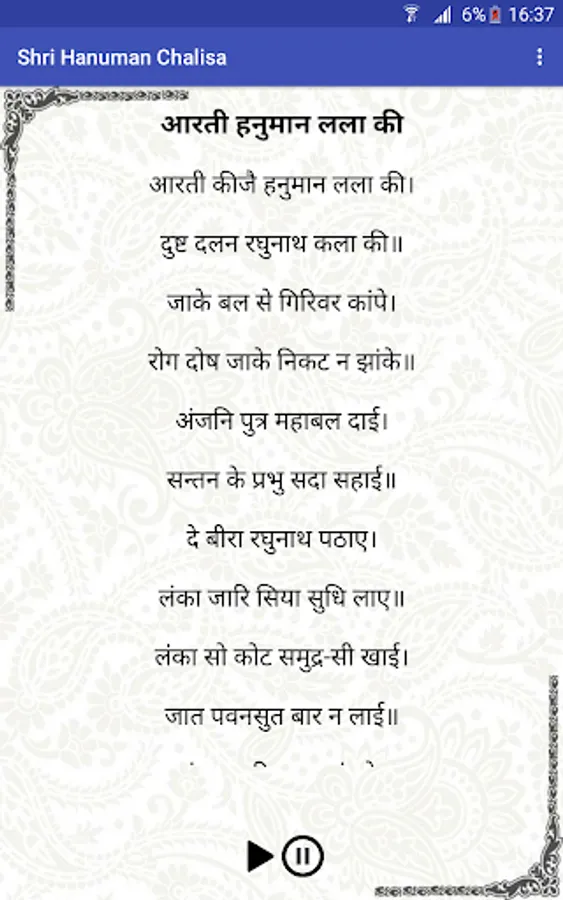 6% 16:37
Shri Hanuman Chalisa
आरती हनुमान लला की
आरती कीजै हनुमान लला की।
दुष्ट दलन रघुनाथ कला की॥
जाके बल से गिरिवर कांपे।
रोग दोष जाके निकट न झांके॥
अंजनि पुत्र महाबल दाई।
सन्तन के प्रभु सदा सहाई॥
दे बीरा रघुनाथ पठाए।
लंका जारि सिया सुधि लाए॥
लंका सो कोट समुद्र-सी खाई।
जात पवनसुत बार न लाई॥